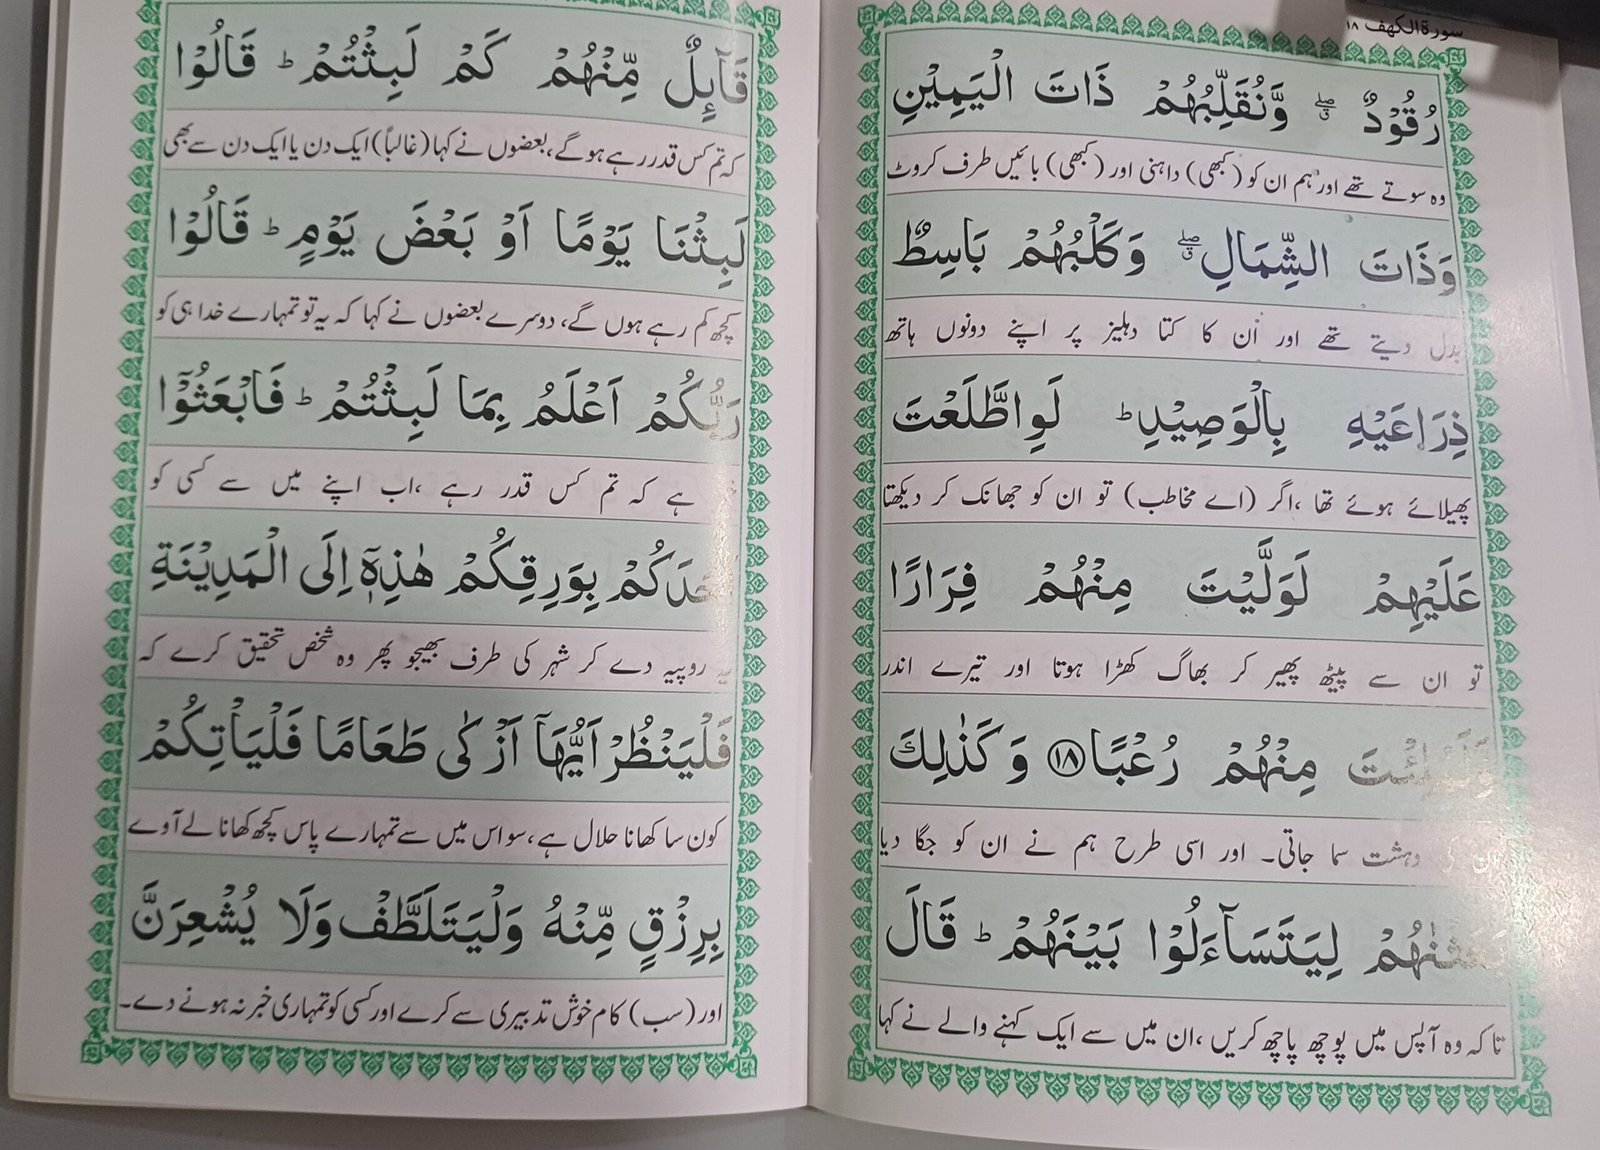 سورۃ الکھف ۱۸
رُقُوْدٌ ۖۗ وَّنُقَلِّبُهُمْ ذَاتَ الْيَمِيْنِ
وہ سوتے تھے اور ہم ان کو (کبھی) داہنی اور (کبھی) بائیں طرف کروٹ
وَذَاتَ الشِّمَالِ ۖۗ وَكَلْبُهُمْ بَاسِطٌ
بدل دیتے تھے اور اُن کا کتا دہلیز پر اپنے دونوں ہاتھ
ذِرَاعَيْهِ بِالْوَصِيْدِ ؕ لَوِاطَّلَعْتَ
پھیلائے ہوئے تھا ،اگر (اے مخاطب) تو ان کو جھانک کر دیکھتا
عَلَيْهِمْ لَوَلَّيْتَ مِنْهُمْ فِرَارًا
تو ان سے پیٹھ پھیر کر بھاگ کھڑا ہوتا اور تیرے اندر
وَّلَمُلِئْتَ مِنْهُمْ رُعْبًا ⑱ وَكَذٰلِكَ
ان کی دہشت سما جاتی۔ اور اسی طرح ہم نے ان کو جگا دیا
بَعَثْنٰهُمْ لِيَتَسَآءَلُوْا بَيْنَهُمْ ؕ قَالَ
تا کہ وہ آپس میں پوچھ پاچھ کریں ،ان میں سے ایک کہنے والے نے کہا
قَآىِٕلٌ مِّنْهُمْ كَمْ لَبِثْتُمْ ؕ قَالُوْا
کہ تم کس قدر رہے ہوگے، بعضوں نے کہا (غالباً) ایک دن یا ایک دن سے بھی
لَبِثْنَا يَوْمًا اَوْ بَعْضَ يَوْمٍ ؕ قَالُوْا
کچھ کم رہے ہوں گے، دوسرے بعضوں نے کہا کہ یہ تو تمہارے خدا ہی کو
رَبُّكُمْ اَعْلَمُ بِمَا لَبِثْتُمْ ؕ فَابْعَثُوْٓا
ہے کہ تم کس قدر رہے ،اب اپنے میں سے کسی کو
اَحَدَكُمْ بِوَرِقِكُمْ هٰذِهٖٓ اِلَى الْمَدِيْنَةِ
یہ روپیہ دے کر شہر کی طرف بھیجو پھر وہ شخص تحقیق کرے کہ
فَلْيَنْظُرْ اَيُّهَآ اَزْكٰى طَعَامًا فَلْيَاْتِكُمْ
کون سا کھانا حلال ہے، سو اس میں سے تمہارے پاس کچھ کھانا لے آوے
بِرِزْقٍ مِّنْهُ وَلْيَتَلَطَّفْ وَلَا يُشْعِرَنَّ
اور (سب) کام خوش تدبیری سے کرے اور کسی کو تمہاری خبر نہ ہونے دے۔